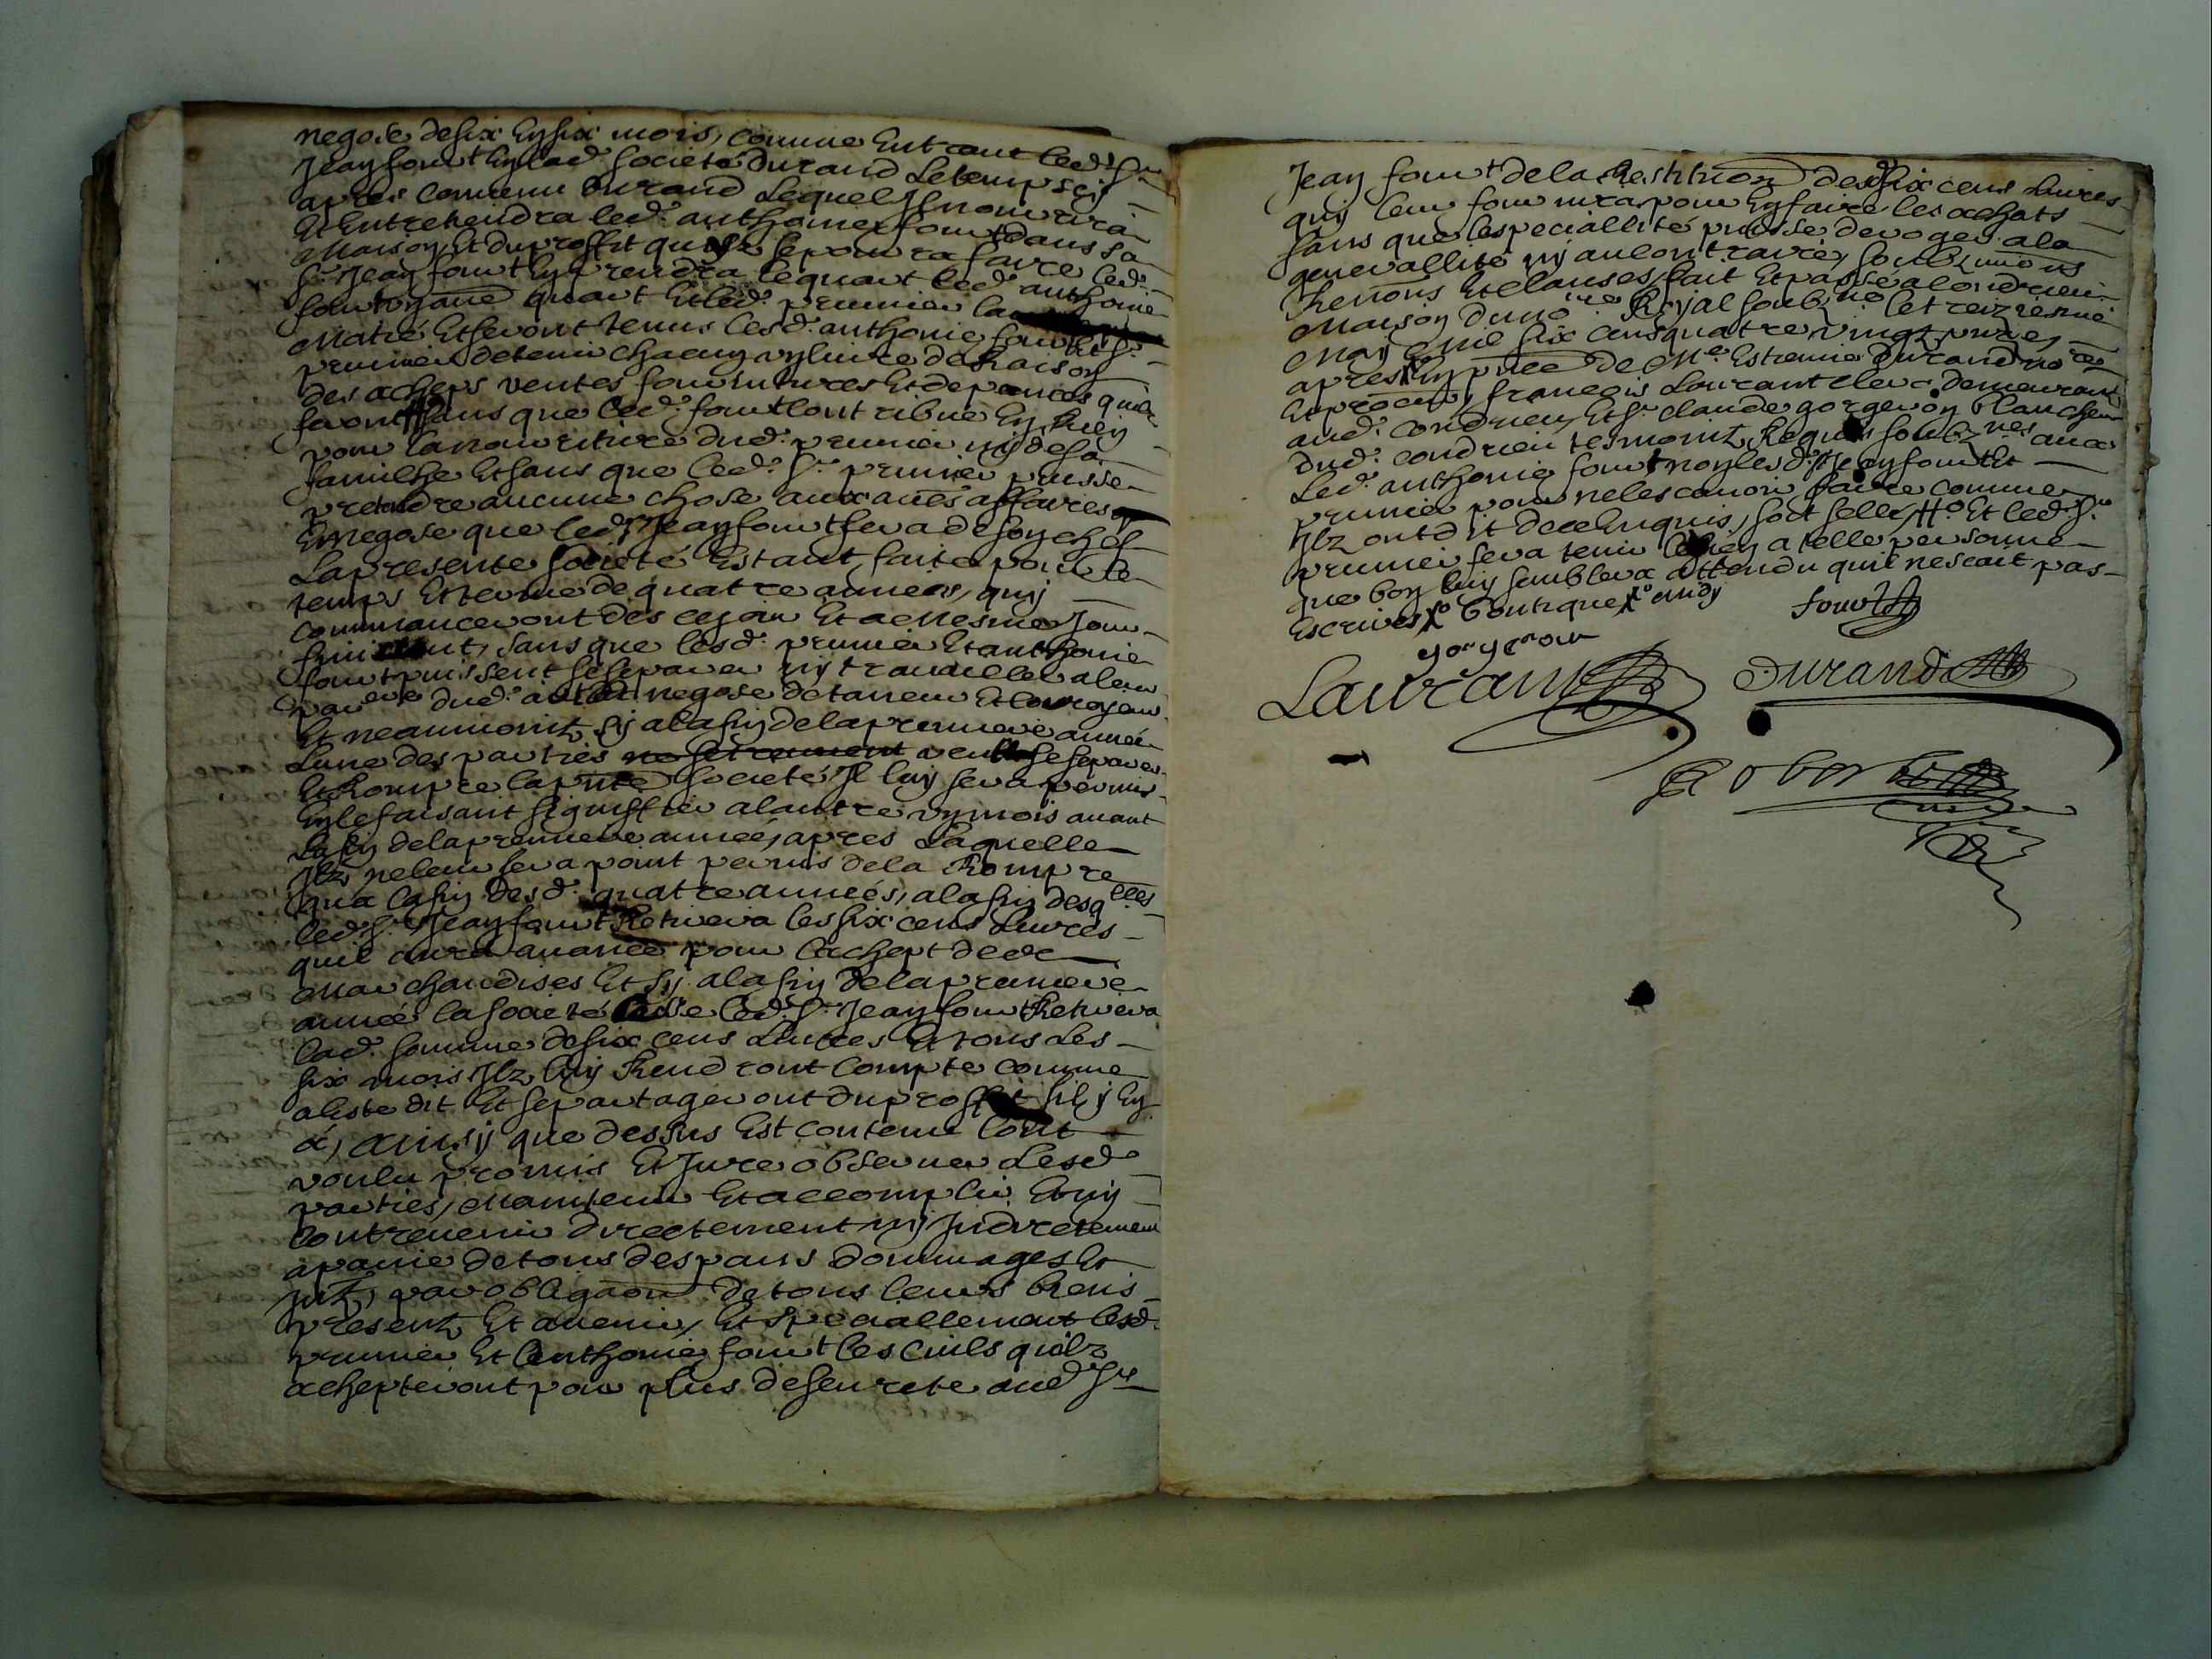 negose de six en six mois, comme Entrant led. Sr
Jean fourt En lad. societé Durand Le temps cy
apres convenu Durand Lequel Il nourrira
Et Entretiendra led. anthoine fourt dans sa
Maison Et du proffit qui se pourra faire led.
Sr Jean fourt En prendra le quart led. anthoine
fourt quart Et led. prunier
Matié Et seront tenus lesd. anthoine fourt Et Sr
prunier de tenir chacun un livre de Raison
des acheps ventes fournitures Et depances quilz
feront sans que led. fourt contribue En rien
pour la nourriture dud. prunier ny de sa
familhe Et sans que led. Sr prunier puisse
pretendre aucune chose aux aues affaires
Et negose que led. Sr Jean fourt fera de son chef
La presente societé Estant faite pour le
temps Et terme de quatre années, quy
commanceront des ce jour Et a mesme Jour
finiront, sans que lesd. prunier Et anthoine
fourt puissent se separer ny travailler a leur
dud. negose de taneur Et couroyeur
Et neanmointz sy a la fin de la premiere année
Lune des parties ne se trouvent veult se separer
Et Rompre la pnte societé Il luy sera permis
En le faisant signiffier a lautre un mois avant
La fin de la premiere année, apres Laquelle
Ilz ne leur sera point permis de la Rompre
qua la fin desd. quatre années, a la fin desqlles
led. Sr Jean fourt Retirera les six cens Livres
quil aura avancé pour lachept de ce
Marchandises Et sy a la fin de la premiere
année la societé led. Sr Jean fourt Retirera
lad. somme de six cens Livres Et tous Les
six mois Ilz luy Rendront Compte comme
a esté dit Et se partageront du proffit sil y En
a, ainsy que dessus Est contenu Cont
voulu promis Et Juré observer Lesd.
parties, Maintenir Et accomplir Et ny
Contrevenir directement ny Indirectement
a paine de tous despans dommages Et
Intz, par obligaon de tous leurs biens
presentz Et avenir, Et speciallement lesd.
prunier Et anthoine fourt les Cuirs quilz
achepteront pour plus de seurete aud. Sr
Jean fourt de la Restitution desd. six cens Livres
quy leur fournira pour En faire les achats
sans que la speciallité puisse deroger a la
generallité ny au contraire, soubzmions
Renons Et clauses, fait Et passé a Condrieu
Maison du nore Royal soubzne le treiziesme
May mil six cens quatre vingtz
apres En pnce de Me Estienne Durand nore
Et procur, francois Laurant clerc demeurant
aud. Condrieu, Et Sr claude gorgeron blancheur
dud. condrieu tesmointz Requis soubznes avec
Led. anthoine fourt non lesd. Sr Jean fourt Et
prunier pour ne les cavoir faire comme
Ilz ont dit de ce Enquis, soit sellé, Et led. Sr
prunier fera tenir le sien a telle personne
que bon luy semblera attendu quil ne scait pas
Escrire, boutique
fourt
Laurant
Durand